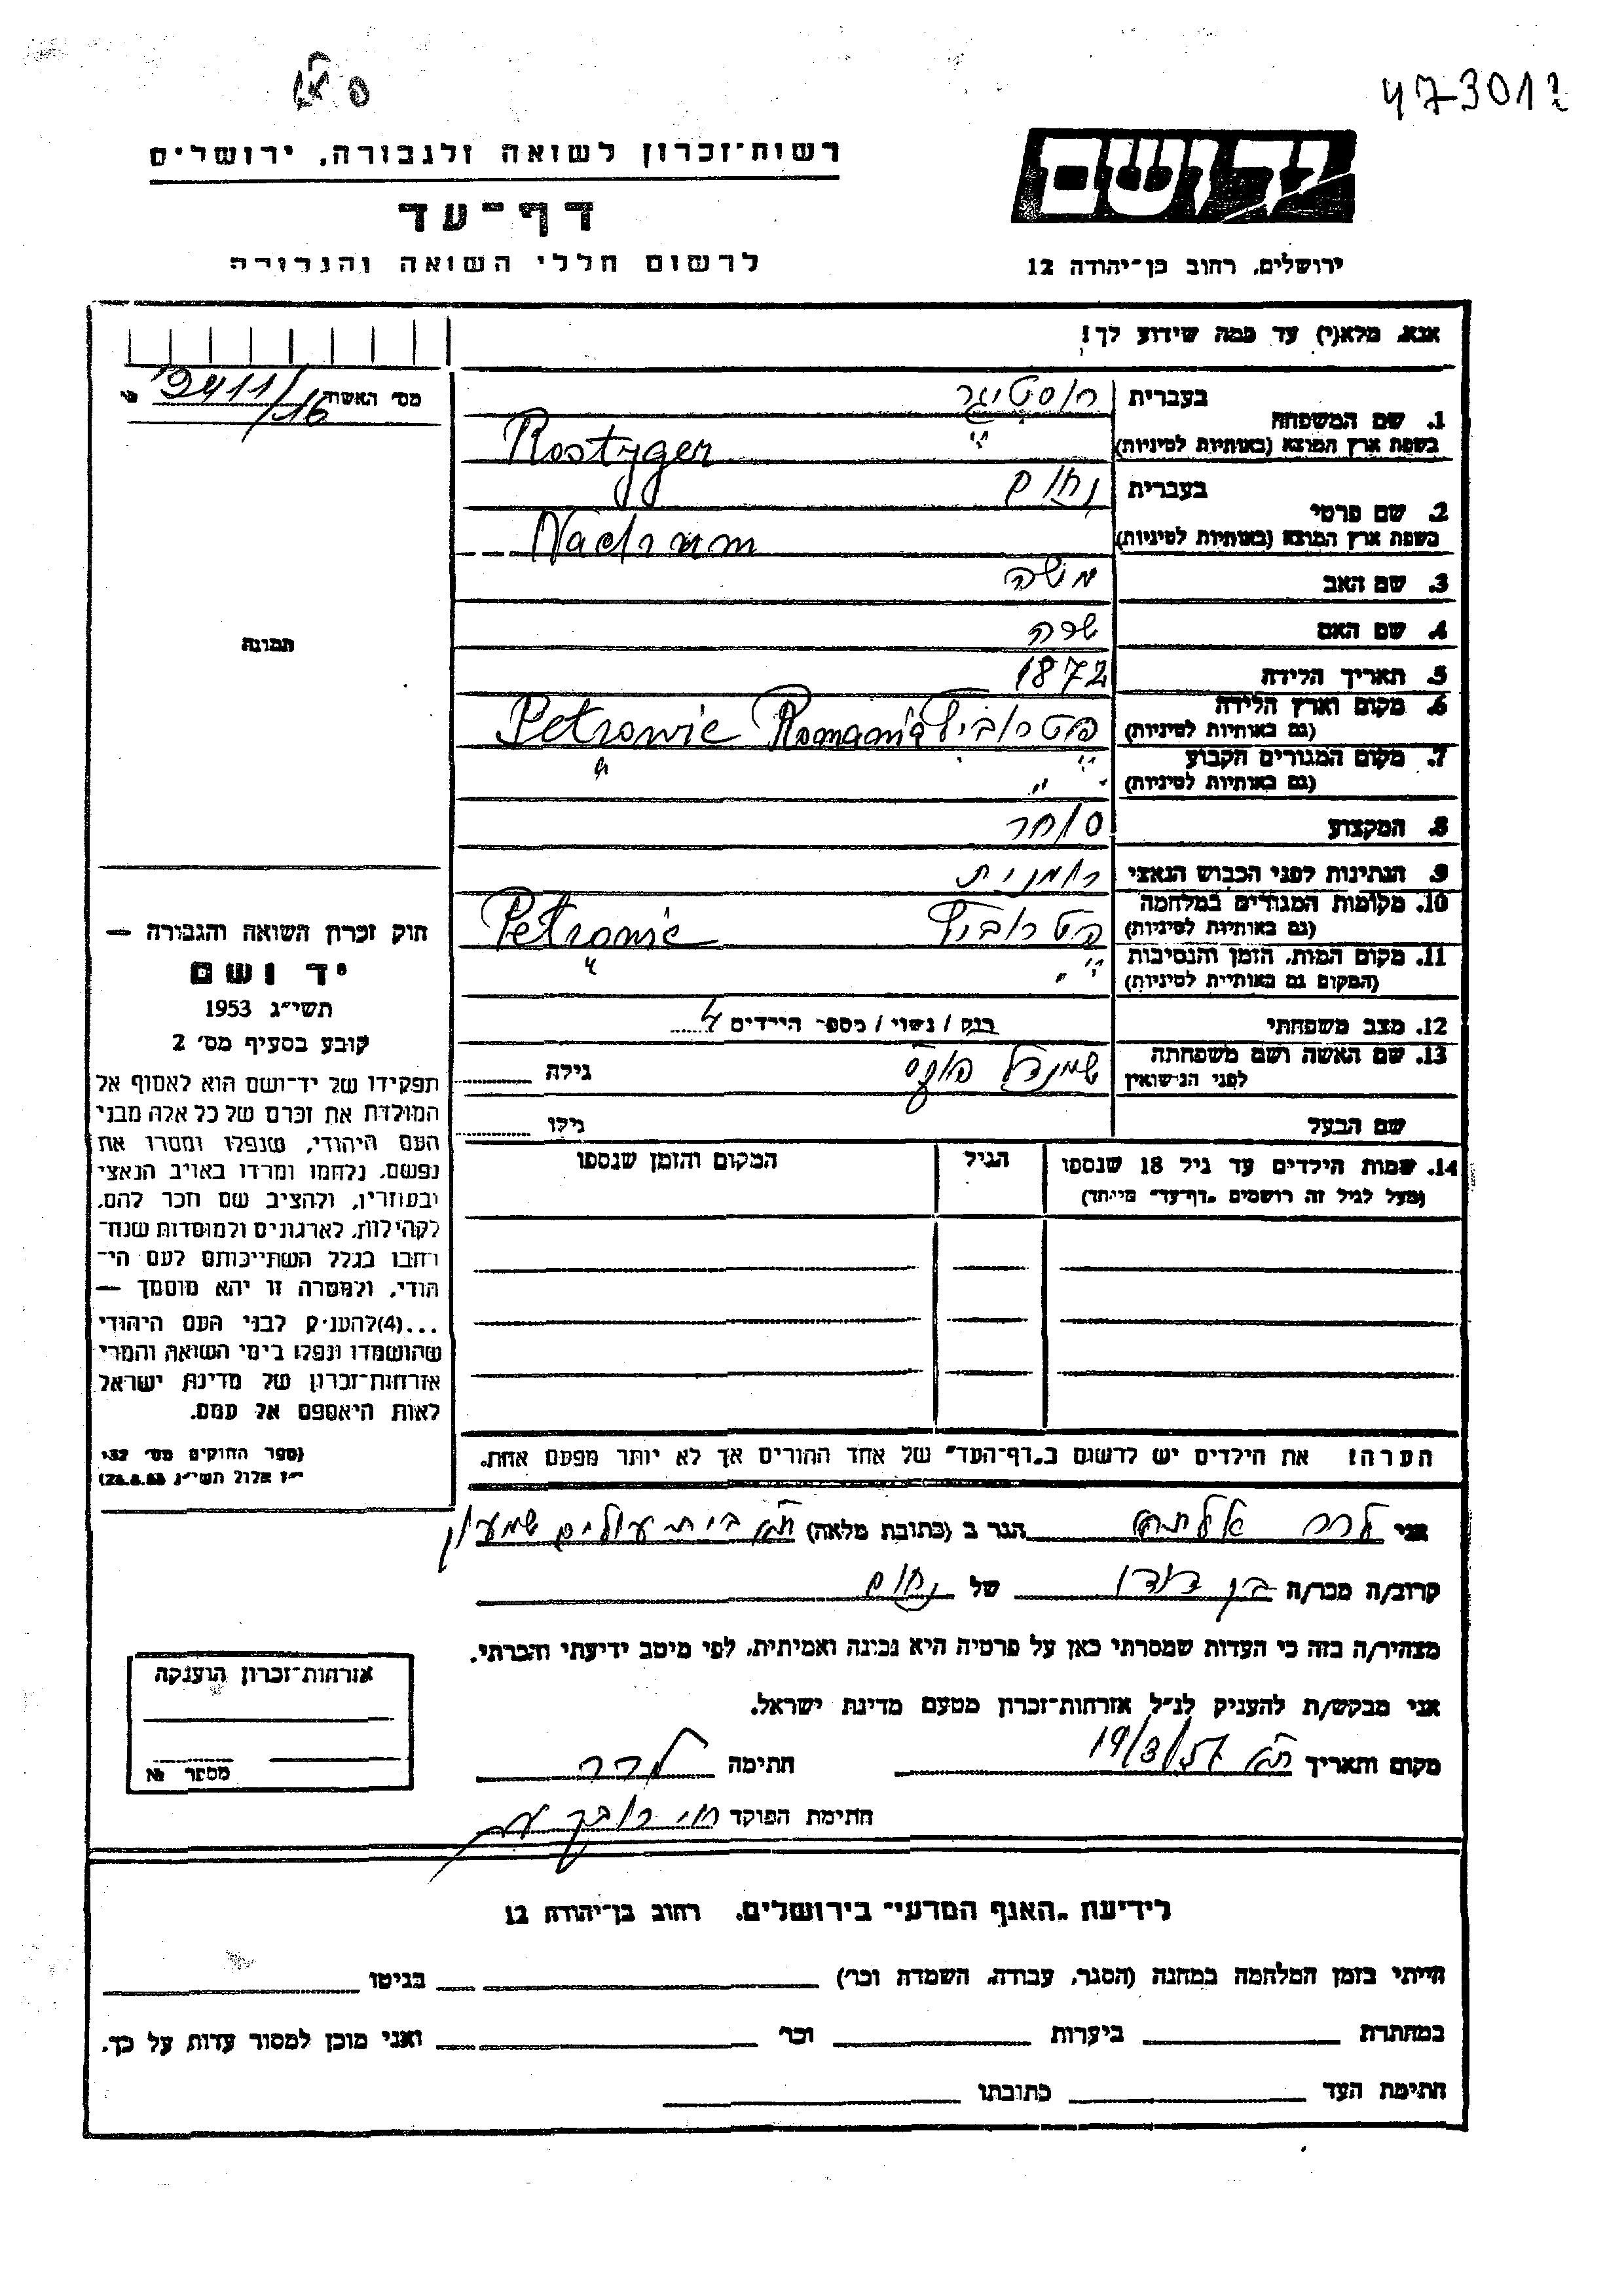 473012
יד ושם
רשות־זכרון לשואה ולגבורה, ירושלים
דף־עד
לרשום חללי השואה והגבורה
ירושלים, רחוב בן־יהודה 12
אנא, מלא(י) עד כמה שידוע לך!
מס׳ האשה
2411/16
1. שם המשפחה
בעברית רוסטיגר
בשפת ארץ המוצא (באותיות לטיניות) Rostyger
2. שם פרטי
בעברית נחום
בשפת ארץ המוצא (באותיות לטיניות) Nachum
3. שם האב משה
4. שם האם שרה
תמונה
5. תאריך הלידה 1872
6. מקום וארץ הלידה
(גם באותיות לטיניות) פטרוביץ Romania Petrowic
7. מקום המגורים הקבוע
(גם באותיות לטיניות) " " "
8. המקצוע סוחר
9. הנתינות לפני הכבוש הנאצי רומנית
10. מקומות המגורים במלחמה
(גם באותיות לטיניות) פטרוביץ Petrowic
11. מקום המות, הזמן והנסיבות
(המקום גם באותיות לטיניות) " "
12. מצב משפחתי רוק / נשוי / מספר הילדים 4
13. שם האשה ושם משפחתה
לפני הנישואין גילה
שם הבעל גילו
14. שמות הילדים עד גיל 18 שנספו
(מעל לגיל זה רושמים "דף־עד" מייחד)
הגיל
המקום והזמן שנספו
חוק זכרון השואה והגבורה —
יד ושם
תשי״ג 1953
קובע בסעיף מס׳ 2
תפקידו של יד־ושם הוא לאסוף אל
המולדת את זכרם של כל אלה מבני
העם היהודי, שנפלו ומסרו את
נפשם, נלחמו ומרדו באויב הנאצי
ובעוזריו, ולהציב שם וזכר להם,
לקהילות, לארגונים ולמוסדות שנח־
רחבו בגלל השתייכותם לעם הי־
הודי, ולמטרה זו יהא מוסמך —
...(4)להעניק לבני העם היהודי
שהושמדו ונפלו בימי השואה והמרי
אזרחות־זכרון של מדינת ישראל
לאות היאספם אל עמם.
(ספר החוקים מס׳ 132
י״ז אלול תשי״ג 28.8.53)
הערה! את הילדים יש לרשום ב"דף־העד" של אחד ההורים אך לא יותר מפעם אחת.
אני הגר ב (כתובת מלאה) ת״א בית עולים שמעון
קרוב/ה מכר/ה בן דודו של נחום
מצהיר/ה בזה כי העדות שמסרתי כאן על פרטיה היא נכונה ואמיתית, לפי מיטב ידיעתי והכרתי.
אני מבקש/ת להעניק לנ״ל אזרחות־זכרון מטעם מדינת ישראל.
מקום ותאריך ת״א 19/3/57 חתימה
חתימת הפוקד
אזרחות־זכרון הוענקה
מספר №
לידיעת "האגף המדעי" בירושלים, רחוב בן־יהודה 12
הייתי בזמן המלחמה במחנה (הסגר, עבודה, השמדה וכר׳) בגיטו
במחתרת ביערות וכר׳ ואני מוכן למסור עדות על כך.
חתימת העד כתובתו